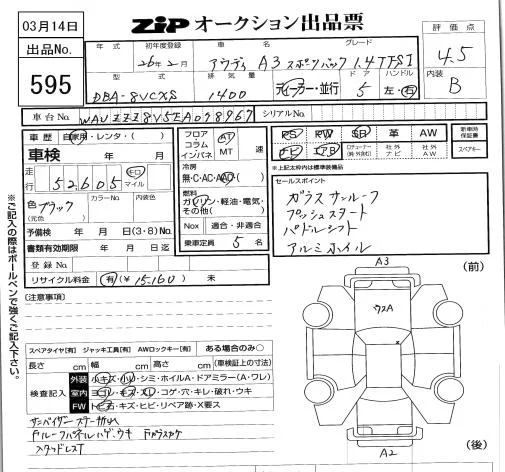 03月14日
ZIP オークション出品票
出品No.
595
年式 初年度登録 車名 グレード
26年2月 アウディ A3 スポーツバック 1.4TFSI
型式 排気量 ドア ハンドル
DBA-8VCXS 1400 ディーラー・並行 5 左・右
評価点
4.5
内装
B
車台No. WAUZZZ8V5EA098967 シリアルNo.
車歴 自家用・レンタ・( )
車検 年 月
走行 52,605 キロ マイル
色 ブラック (元色) カラーNo. 内装色
予備検 年 月 日(3・8)No.
書類有効期限 年 月 日迄
登録No.
リサイクル料金 有(¥ 15,160) 未
フロア コラム インパネ AT MT 速
冷房
無・C・AC・AAC・( )
燃料
ガソリン・軽油・電気・その他( )
Nox 適合・非適合
乗車定員 5 名
PS PW SR 革 AW
ナビ A.B 社外ナビ 社外AW
新車時保証書
スペアキー
※上記太枠内は標準装備品
セールスポイント
ガラスサンルーフ
プッシュスタート
パドルシフト
アルミホイル
※ご記入の際はボールペンで強くご記入下さい。
(注意事項)
スペアタイヤ[有] ジャッキ工具[有] AWロックキー[有] ある場合のみ○
長さ cm 幅 cm 高さ cm (車検証上の寸法)
検査記入
外装 小キズ・小凹・シミ・ホイルA・ドアミラー(A・ワレ)
室内 ヨゴレ・キズ・スレ・コゲ・穴・キレ・破れ・ウキ
FW トビ石・キズ・ヒビ・リペア跡・X要ス
サンバイザー ステーカレ
スタッドレスT
A3
(前)
ウスA
x
A2
(後)